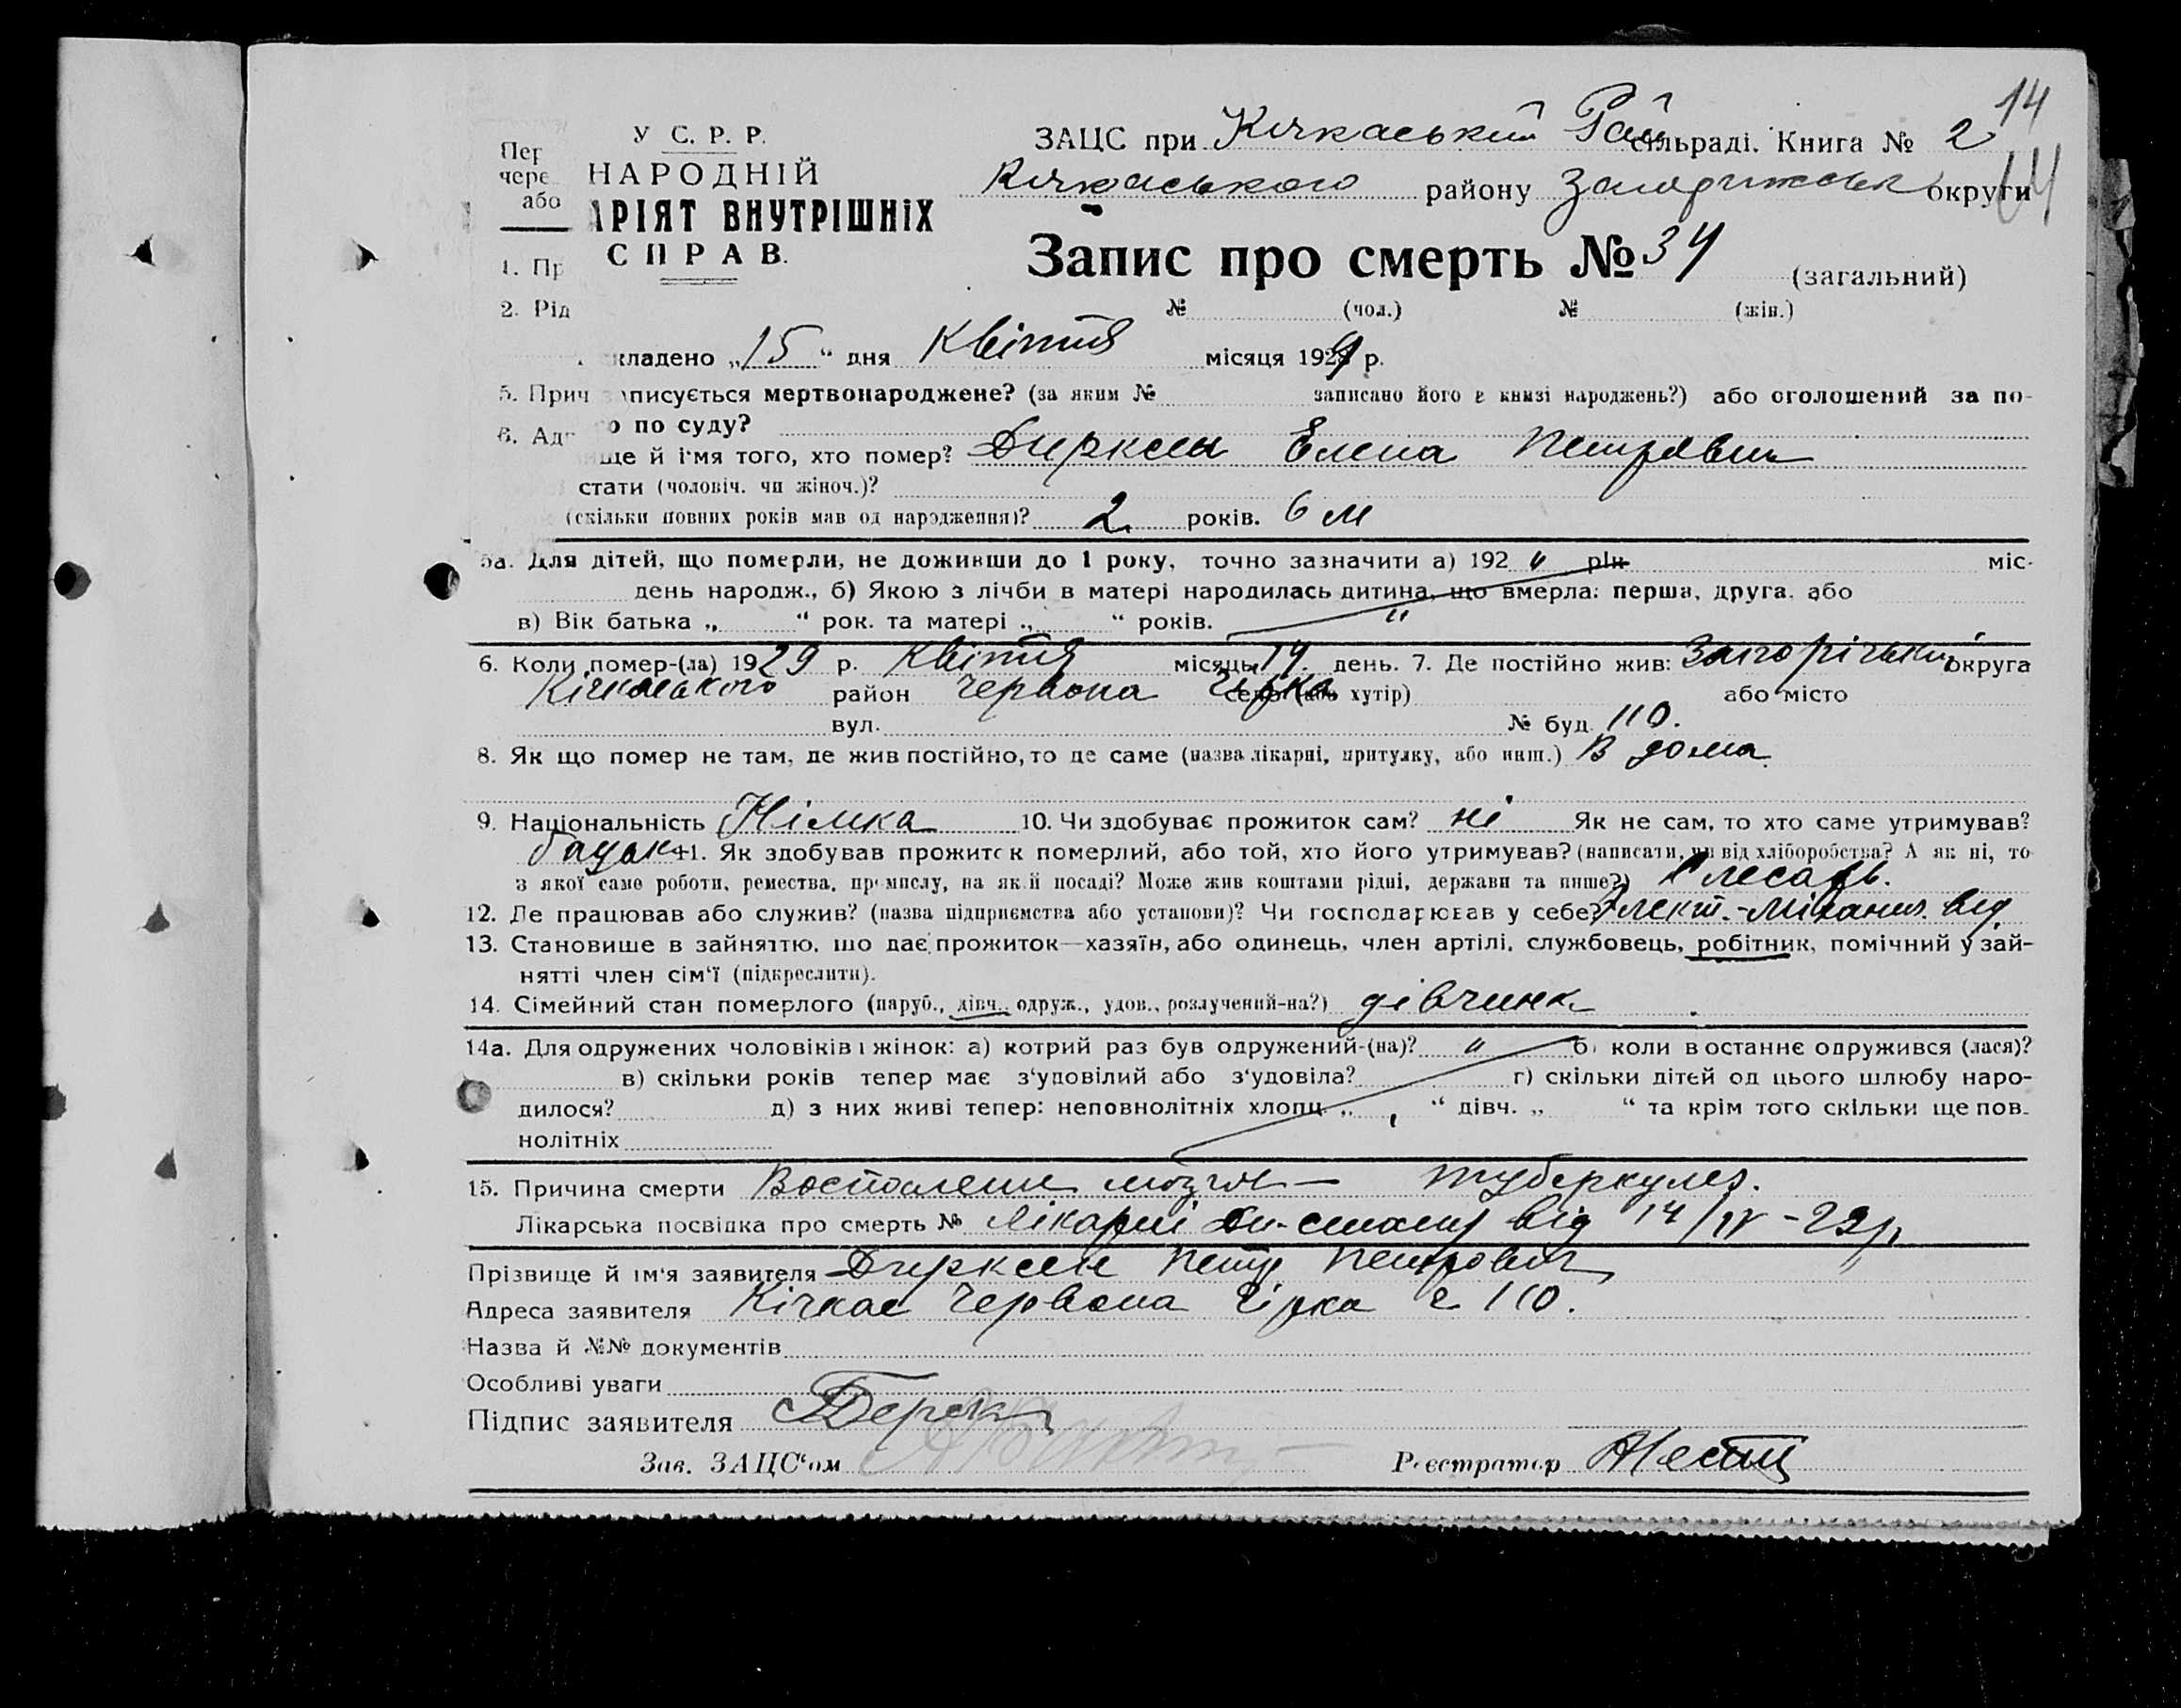 14
У С. Р. Р.
ЗАЦС при Кічкаський Рай сільраді. Книга № 2
Пер
чере
або
НАРОДНІЙ
Кічкаського району округи
14
АРІЯТ ВНУТРІШНІХ
СПРАВ.
Запис про смерть № 34 (загальний)
1. Пр
2. Рід
№ (чол.) № (жін.)
кладено „15“ дня Квітня місяця 1929 р.
5. Прич
аписується мертвонароджене? (за яким № записано його в книзі народжень?) або оголошений за по-
о по суду?
6. Ад
ще й ім'я того, хто помер? Дирксен Елена Петровна
стати (чоловіч. чи жіноч.)?
(скільки повних років мав од народження)? 2 років. 6 м
5а. Для дітей, що померли, не доживши до 1 року, точно зазначити а) 192 „ рік міс.
день народж., б) Якою з лічби в матері народилась дитина, що вмерла: перша, друга, або
в) Вік батька „ “ рок. та матері „ “ років. “
6. Коли помер-(ла) 1929 р. Квітня місяць 14. день. 7. Де постійно жив: округа
Кічкаського район Червона Гірка село (або хутір) або місто
вул. № буд. 110.
8. Як що помер не там, де жив постійно, то де саме (назва лікарні, притулку, або инш.) В дома.
9. Національність Німка 10. Чи здобуває прожиток сам? ні Як не сам, то хто саме утримував?
11. Як здобував прожиток померлий, або той, хто його утримував? (написати, чи від хліборобства? А як ні, то
з якої саме роботи, ремества, промислу, на якій посаді? Може жив коштами рідні, держави та инше?) Слесарь.
12. Де працював або служив? (назва підприємства або установи)? Чи господарював у себе? Елект.-Механич. від
13. Становище в зайняттю, що дає прожиток—хазяїн, або одинець, член артілі, службовець, робітник, помічний у зай-
нятті член сім'ї (підкреслити).
14. Сімейний стан померлого (паруб., дівч., одруж., удов., розлучений-на?) дівчинка
14а. Для одружених чоловіків і жінок: а) котрий раз був одружений-(на)? „ б) коли востаннє одружився (лася)?
в) скільки років тепер має з'уповілий або з'удовіла? г) скільки дітей од цього шлюбу наро-
дилося? д) з них живі тепер: неповнолітніх хлопц. „ “ дівч. „ “ та крім того скільки ще пов-
нолітніх
15. Причина смерти Воспаление мозга — туберкулез.
Лікарська посвідка про смерть № Лікарні від 14/IV - 29 р.
Прізвище й ім'я заявителя Дирксен Петр Петрович
Адреса заявителя Кічкас Червона Гірка 110.
Назва й №№ документів
Особливі уваги
Підпис заявителя
Зав. ЗАЦС'ом Реєстратор